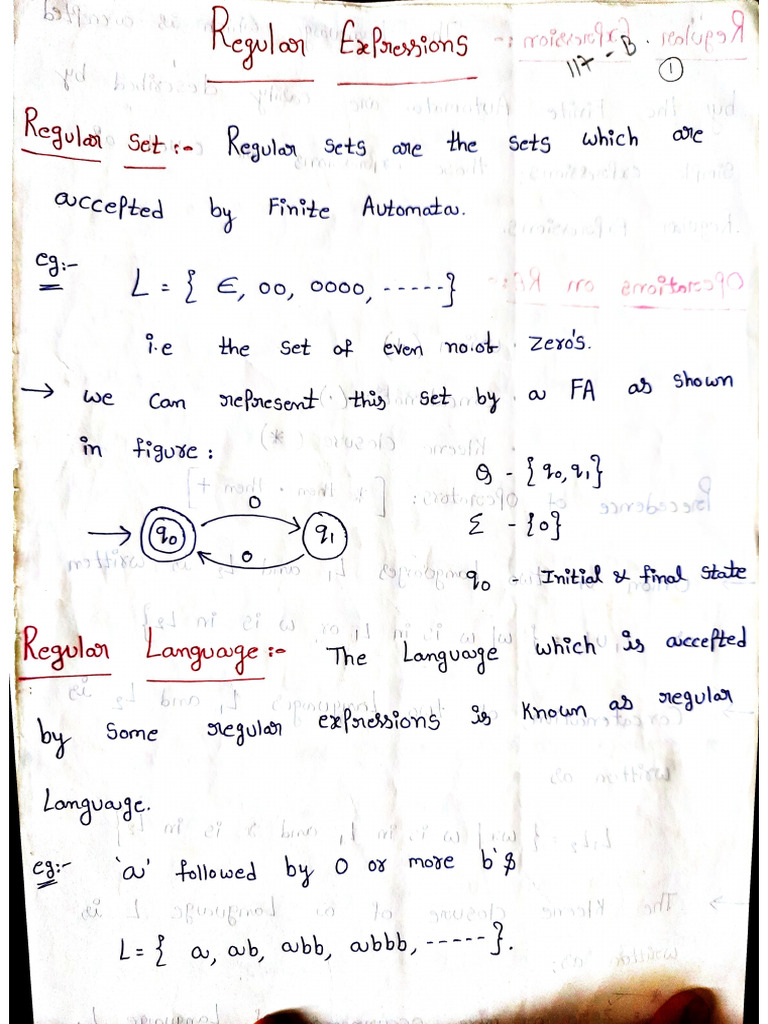 Regular Expressions
117-B
1
Regular Set :- Regular sets are the sets which are
accepted by Finite Automata.
eg:-
L = { ∈, 00, 0000, ----- }
i.e the set of even no.of zero's.
→ we can represent this set by a FA as shown
in figure :
Q - {q0, q1}
0
→ q0 q1
Σ - {0}
0
q0 - Initial & final state
Regular Language :- The Language which is accepted
by some regular expressions is known as regular
Language.
eg:- 'a' followed by 0 or more b's
L = { a, ab, abb, abbb, ----- }.